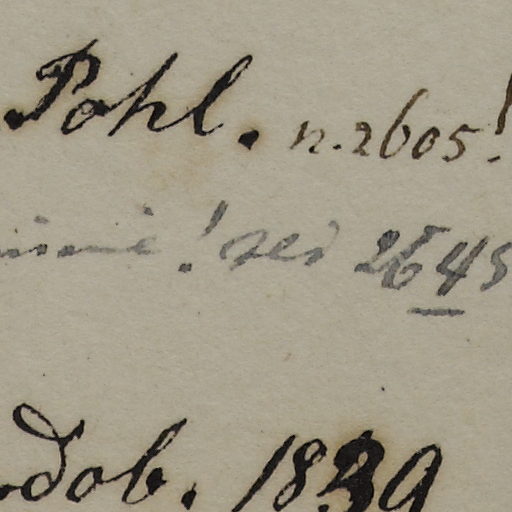 Pohl. n. 2605!
! sed 2645
dob. 1839